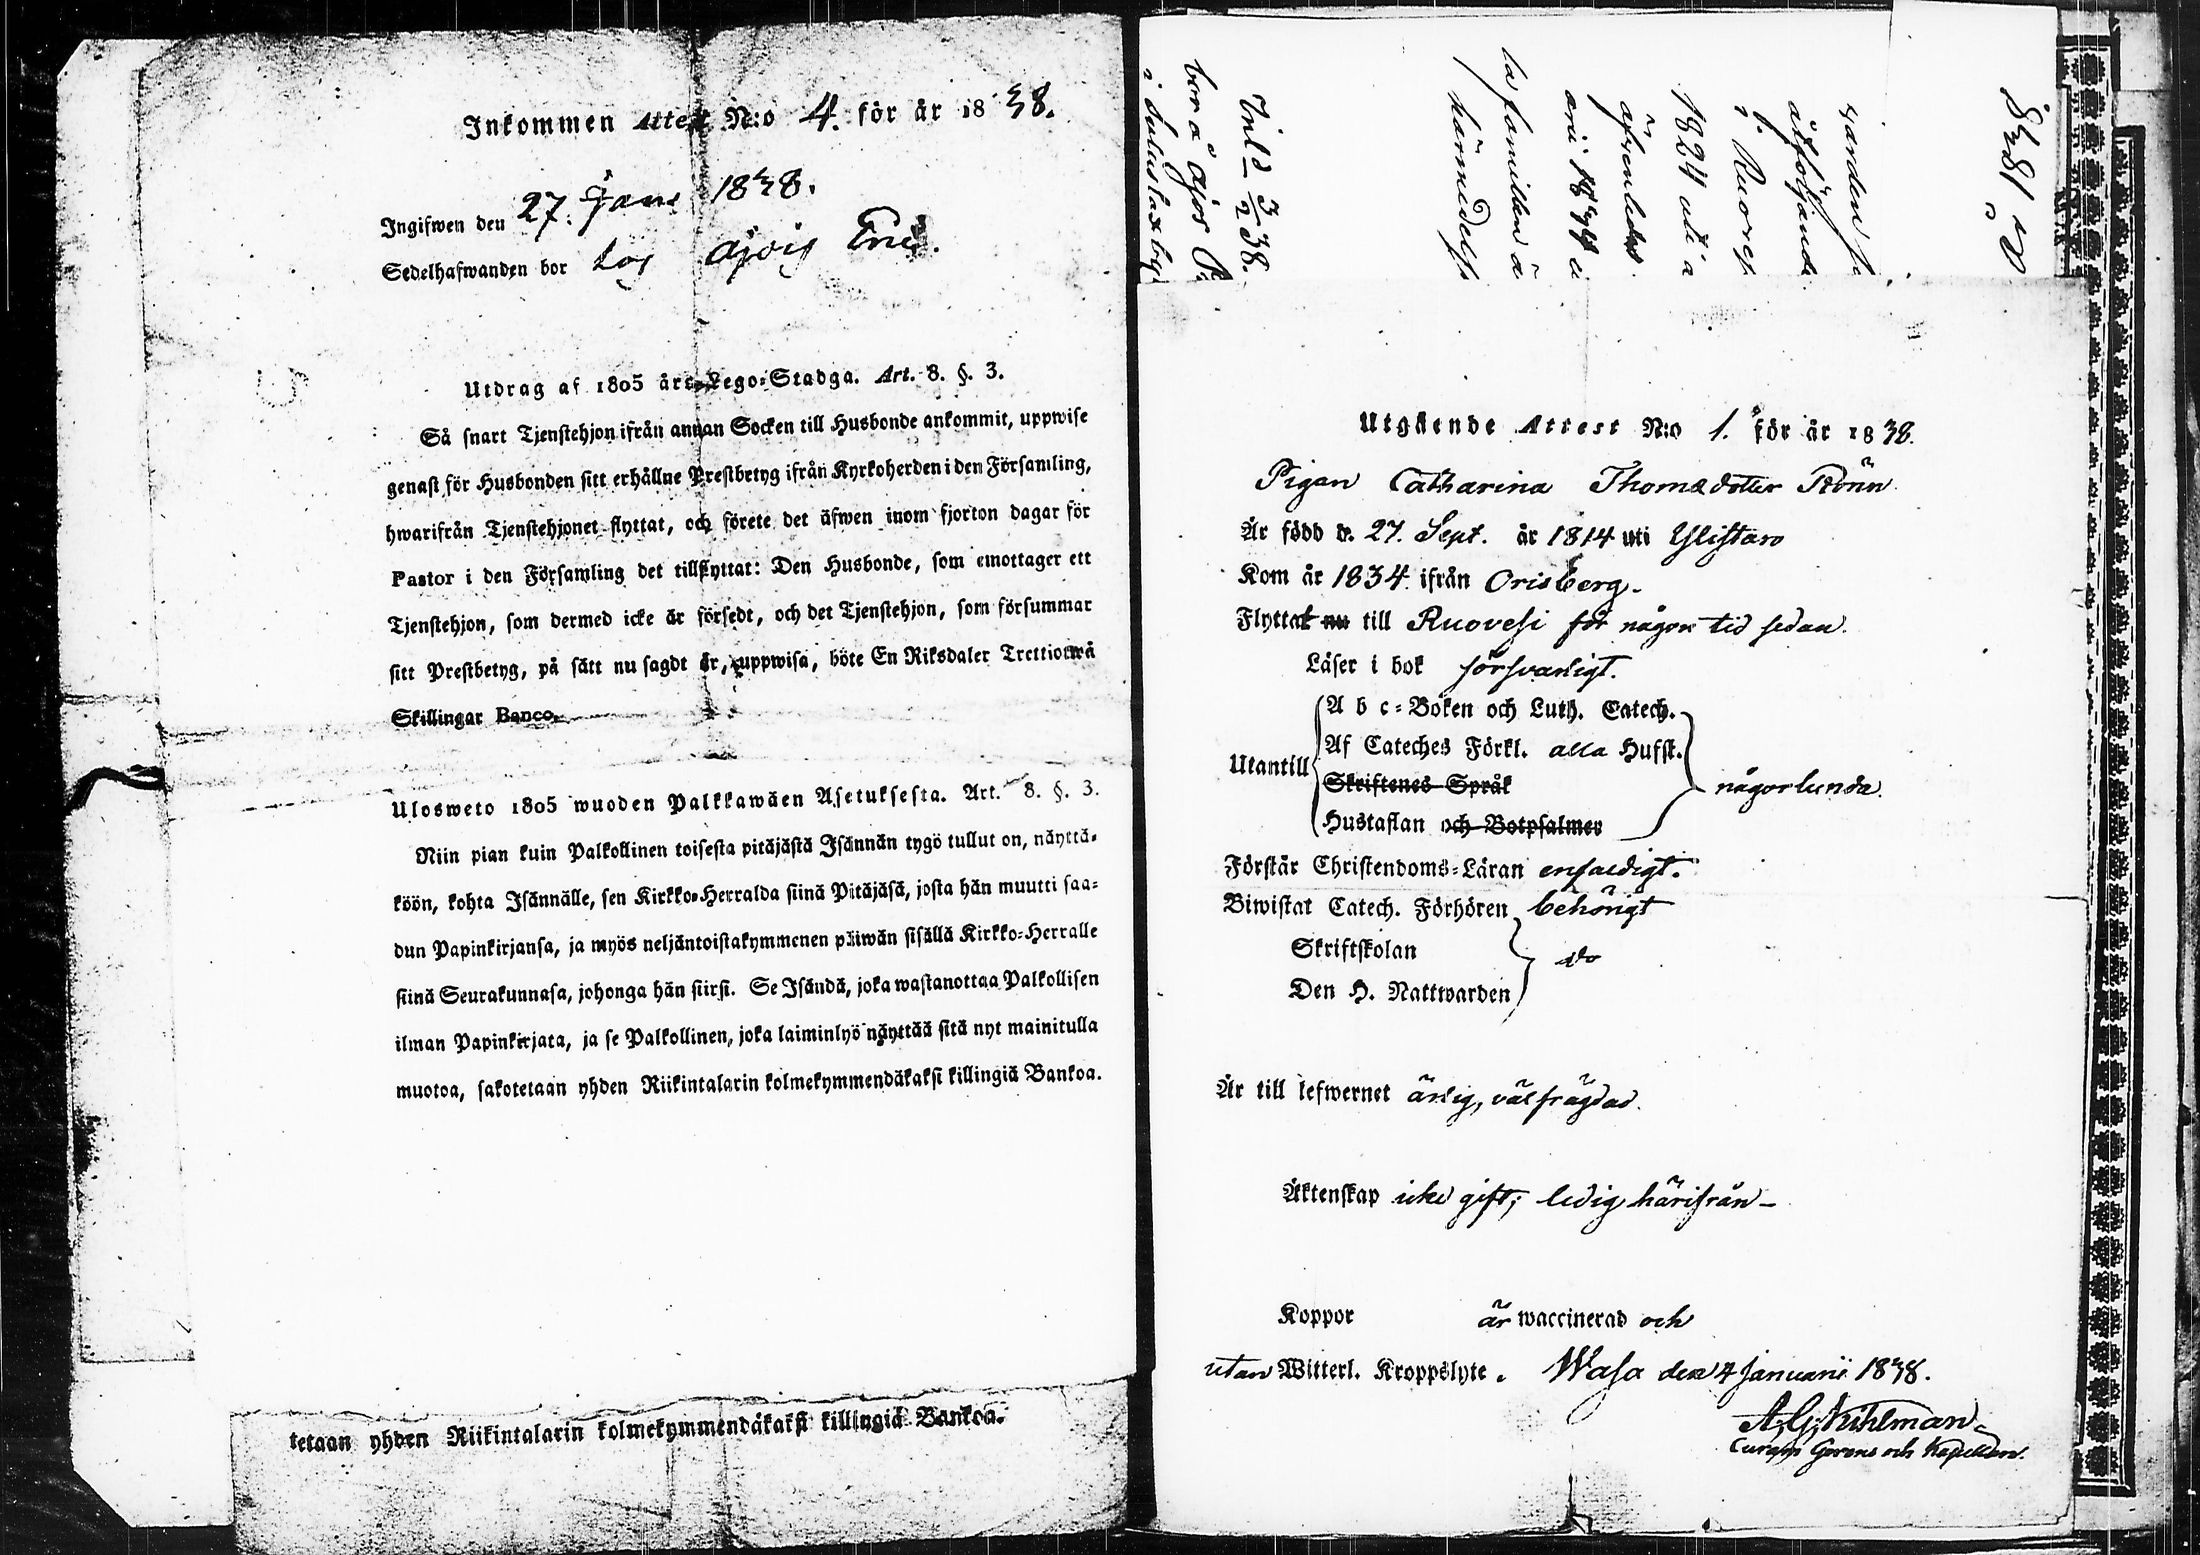 Inkommen Attest N:o 4. för år 1838.
Ingifwen den 27. Jan. 1838.
Sedelhafwanden bor hos
Utdrag af 1805 års Lego-Stadga. Art. 8. §. 3.
Så snart Tjenstehjon ifrån annan Socken till Husbonde ankommit, uppwise
genast för Husbonden sitt erhållne Prestbetyg ifrån Kyrkoherden i den Församling,
hwarifrån Tjenstehjonet flyttat, och förete det äfwen inom fjorton dagar för
Pastor i den Församling det tillflyttat: Den Husbonde, som emottager ett
Tjenstehjon, som dermed icke är försedt, och det Tjenstehjon, som försummar
sitt Prestbetyg, på sätt nu sagdt är, uppwisa, böte En Riksdaler Trettiotwå
Skillingar Banco.
Ulosweto 1805 wuoden Palkkawäen Asetuksesta. Art. 8. §. 3.
Niin pian kuin Palkollinen toisesta pitäjästä Isännän tygö tullut on, näyttä-
köön, kohta Isännälle, sen Kirkko-Herralda siinä Pitäjäsä, josta hän muutti saa-
dun Papinkirjansa, ja myös neljäntoistakymmenen päiwän sisällä Kirkko-Herralle
siinä Seurakunnasa, johonga hän siirsi. Se Isändä, joka wastanottaa Palkollisen
ilman Papinkirjata, ja se Palkollinen, joka laiminlyö näyttää sitä nyt mainitulla
muotoa, sakotetaan yhden Riikintalarin kolmekymmendäkaksi killingiä Bankoa.
tetaan yhden Riikintalarin kolmekymmendäkaksi killingiä Bankoa.
1838
åtföljande
i Ruoves
1824 uti
äfvenledes
arii 1834
la familien
härmedels
Inl. d. 3/2 38.
bor å
Utgående Attest N:o 1. för år 1838.
Pigan Catharina Thomædotter Rönn
Är född d. 27. Sept. år 1814 uti Ylistaro
Kom år 1834 ifrån Orisberg.
Flyttat nu till Ruovesi för någon tid sedan.
Läser i bok försvarligt.
Utantill
A b c-Boken och Luth. Catech.
Af Cateches Förkl. alla Hufst.
Skriftenes Språk
Hustaflan och Botpsalmer
någorlunda.
Förstår Christendoms-Läran enfaldigt.
Biwistat Catech. Förhören behörigt
Skriftskolan
Den H. Nattwarden
do
Är till lefwernet ärlig, välfrägdad.
Äktenskap icke gift; ledig härifrån –
Koppor är waccinerad och
utan Witterl. Kroppslyte. Wasa den 4 Januarii 1838.
A. G. Kuhlman
Curam Gerens och Kapellan.